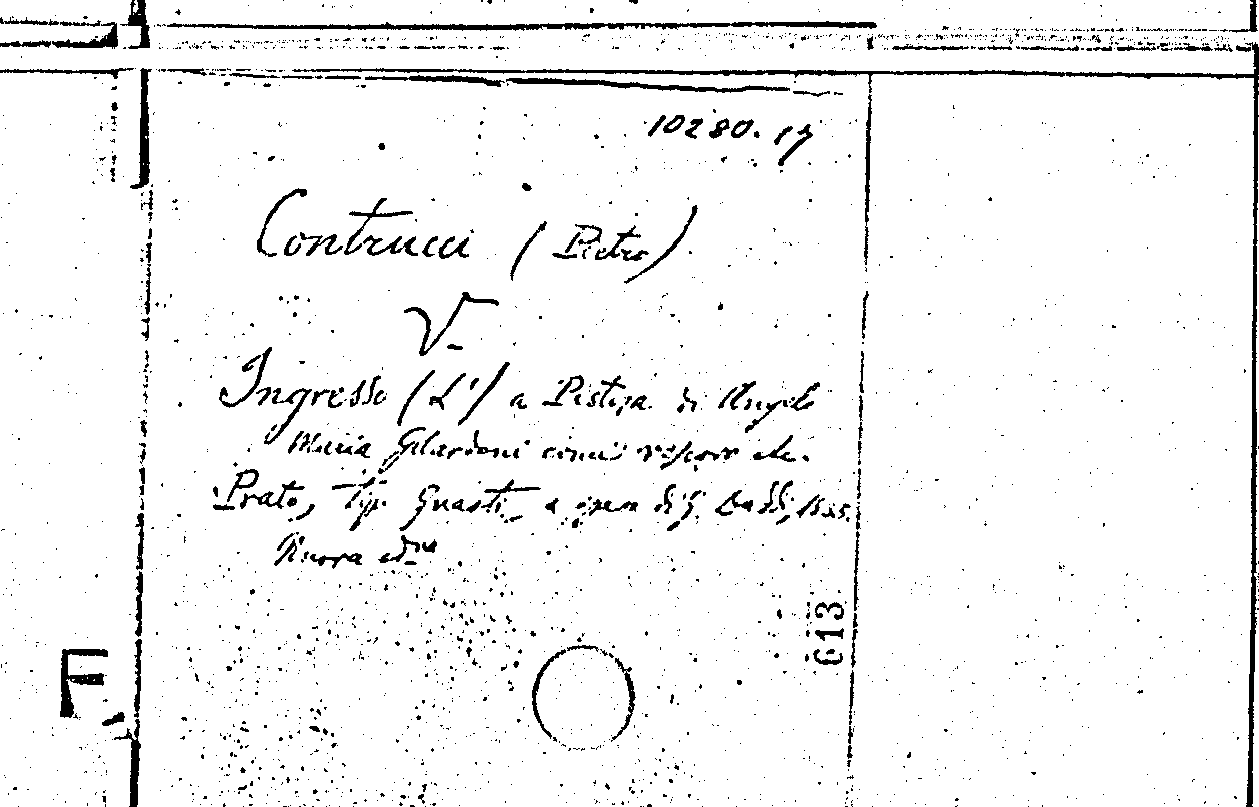 10280. 17
Contrucci (Pietro)
V.
Ingresso (L') a Pistoja di Angelo
Maria Gilardoni vescovo etc.
Prato, Tip. Guasti, a spesa di G. Daddi, 1835.
Nuova ed.ne
613
F